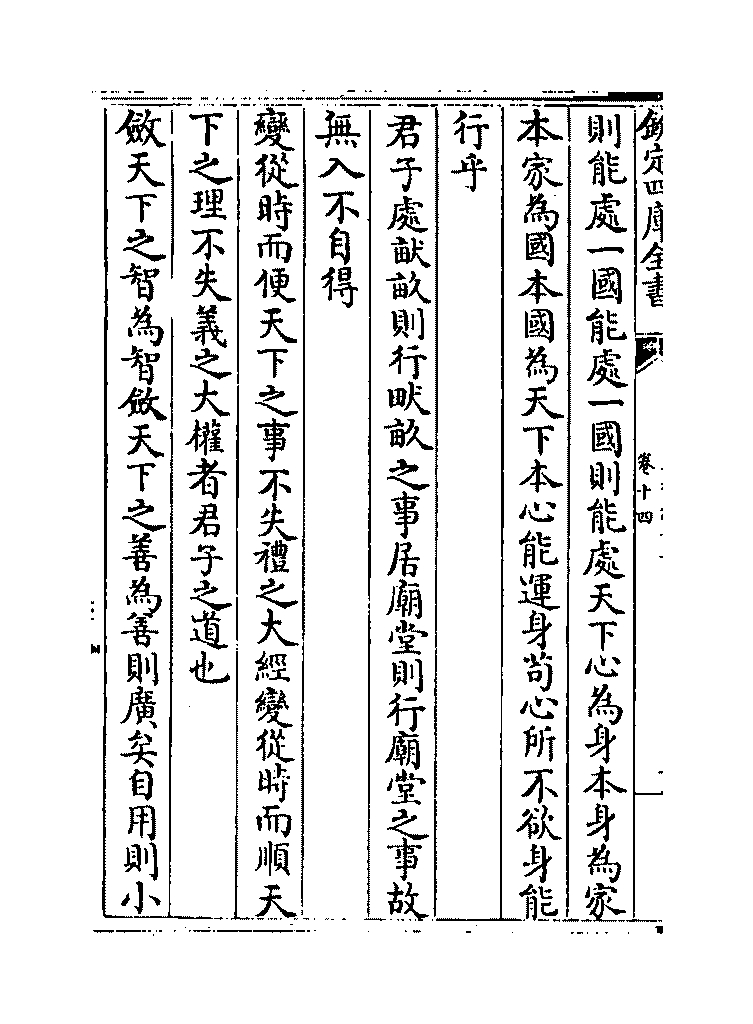 欽定四庫全書
卷十四
則能處一國能處一國則能處天下心為身本身為家
本家為國本國為天下本心能運身苟心所不欲身能
行乎
君子處畎畝則行畎畝之事居廟堂則行廟堂之事故
無入不自得
變從時而便天下之事不失禮之大經變從時而順天
下之理不失義之大權者君子之道也
斂天下之智為智斂天下之善為善則廣矣自用則小